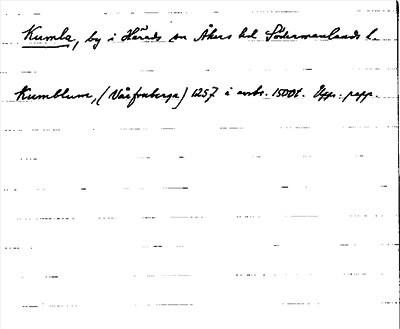 Kumla, by i Härads sn Åkers hd Södermanlands l.
Kumblum, (Vårfruberga) 1257 i avskr. 1500t. Upps. papp.